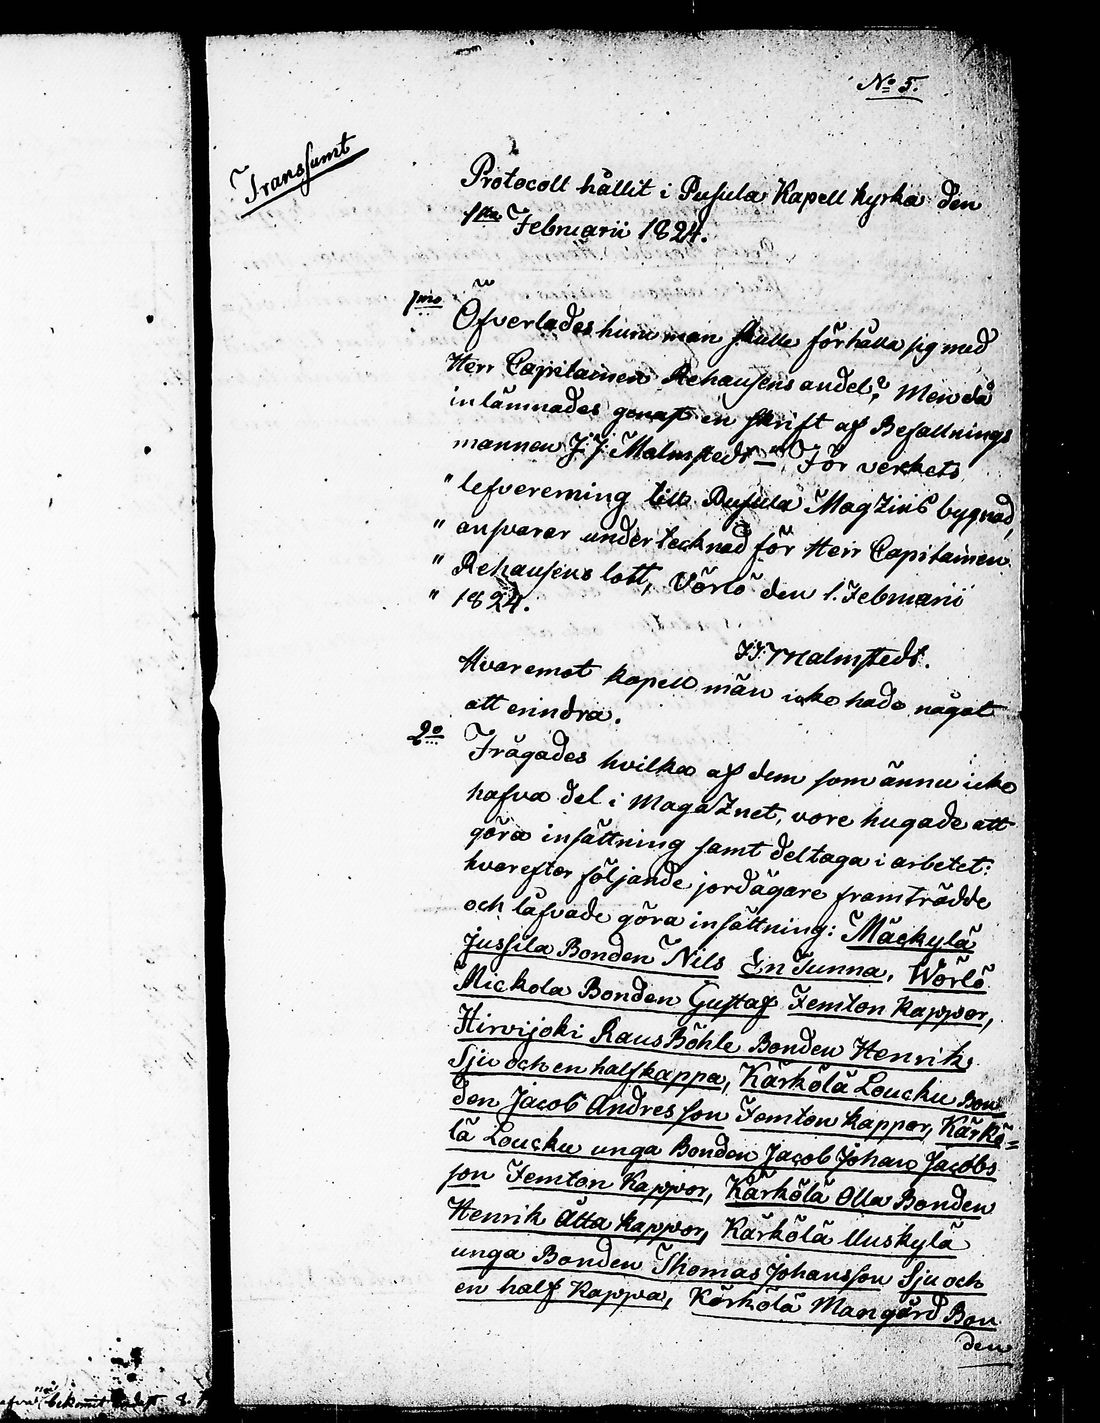 No 5.
Transsumt
Protocoll hållit i Pusula Kapell kyrka den
1sta Februarii 1824.
1mo Öfverlades huru man skulle förhålla sig med
Herr Capitainen Rehausens andel? Men då
inlämnades genast en skrift af Befallnings
mannen J: J: Malmstedt = " För verkets
" lefverering till Pusula Magazins bygnad,
" ansvarar undertecknad för Herr Capitainen
" Rehausens lott, Vörlö den 1. Februarii
" 1824.
J: J: Malmstedt.
Hvaremot kapell män icke hade något
att erindra.
2o Frågades hvilka af dem som ännu icke
hafva del i Magaznet, vore hugade att
göra insättning samt deltaga i arbetet:
hvarefter följande jordägare framträdde
och låfvade göra insättning: Mäckylä
Jussila Bonden Nils En Tunna, Wörlö
Mickola Bonden Gustaf Femton kappor,
Hirvijoki Raus Böhle Bonden Henrik
Sju och en half kappa, Kärkölä Loucku Bon
den Jacob Andersson Femton kappor, Kärkö=
lä Loucku unga Bonden Jacob Johan Jacobs
son Femton Kappor, Kärkölä Olla Bonden
Henrik Åtta kappor, Kärkölä Uuskylä
unga Bonden Thomas Johansson Sju och
en half Kappa, Kärkölä Mangård Bon
den
bekomit